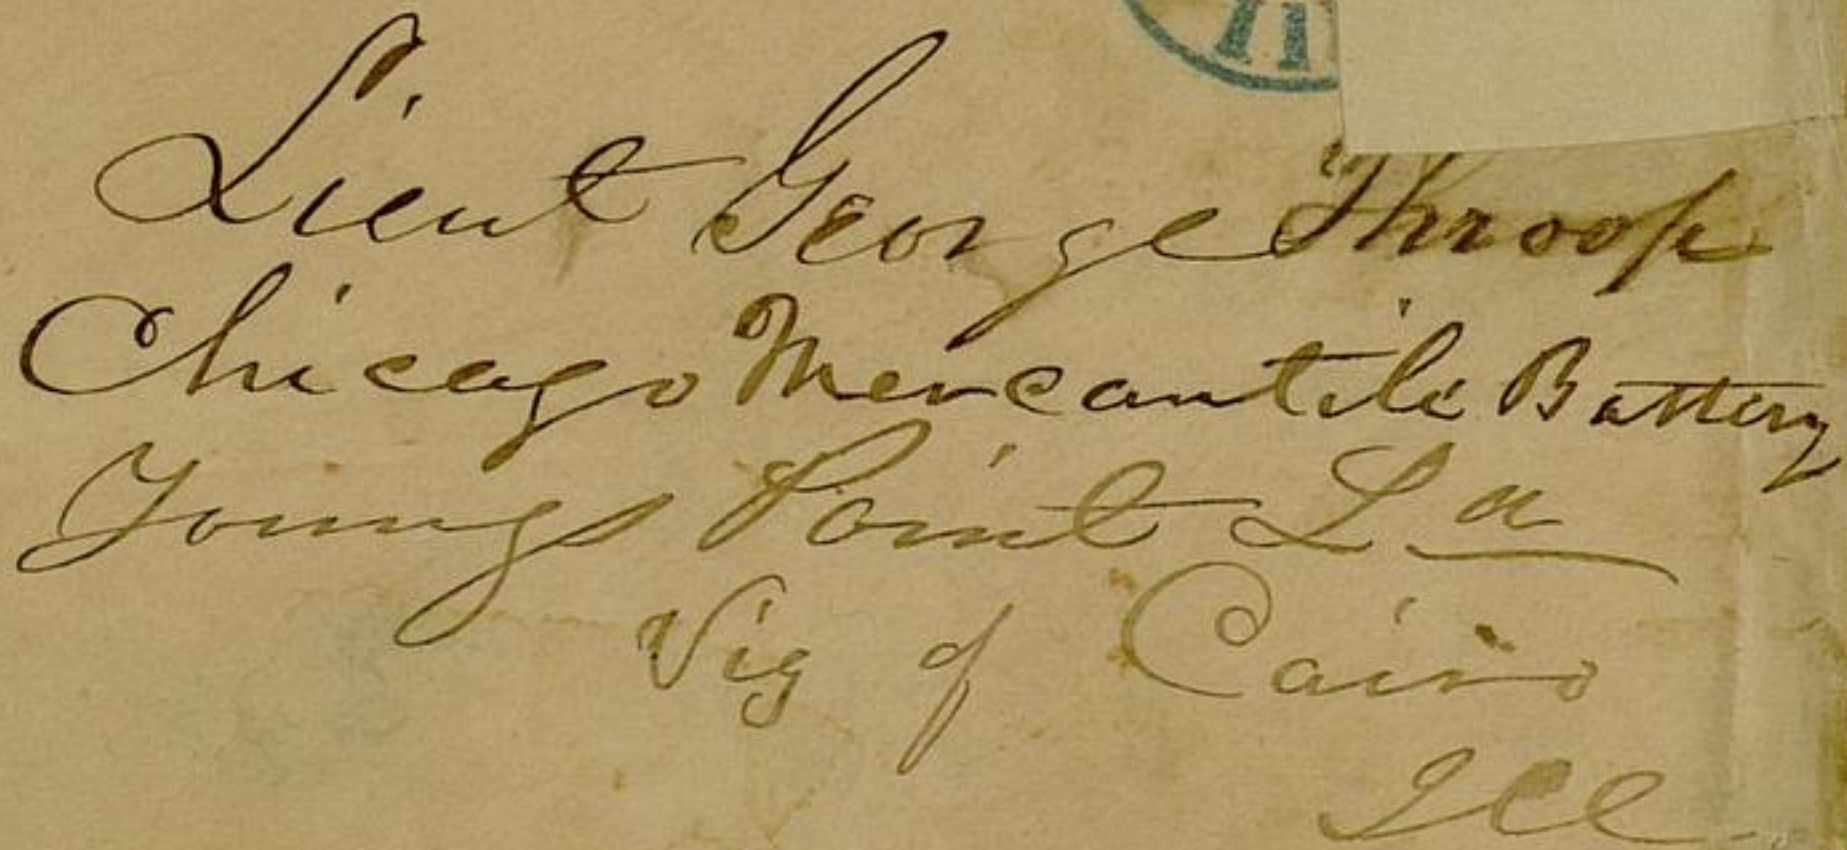 11
Lieut George Throop
Chicago Mercantile Battery
Youngs Point La
Vig of Cairo
Ill.